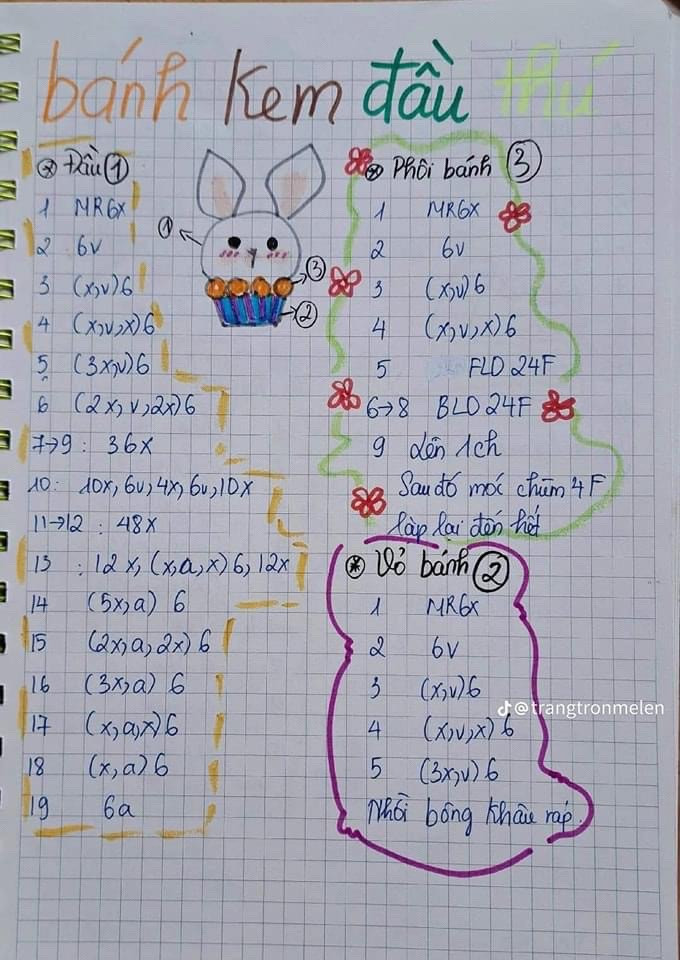 bánh kem đầu thú
* Đầu 1
1 MR6x
2 6v
3 (x,v)6
4 (x,v,x)6
5 (3x,v)6
6 (2x,v,2x)6
7→9 : 36x
10: 10x, 6v, 4x, 6v, 10x
11→12 : 48x
13 : 12x, (x,a,x)6, 12x
14 (5x,a) 6
15 (2x,a,2x) 6
16 (3x,a) 6
17 (x,a,x)6
18 (x,a)6
19 6a
1
3
2
* Phôi bánh 3
1 MR6x
2 6v
3 (x,v)6
4 (x,v,x)6
5 FLO 24F
6→8 BLO 24F
9 Lên 1ch
Sau đó móc chùm 4F
lặp lại đến hết
* Vỏ bánh 2
1 MR6x
2 6v
3 (x,v)6
4 (x,v,x)6
5 (3x,v)6
Nhồi bông khâu ráp.
@trangtronmelen